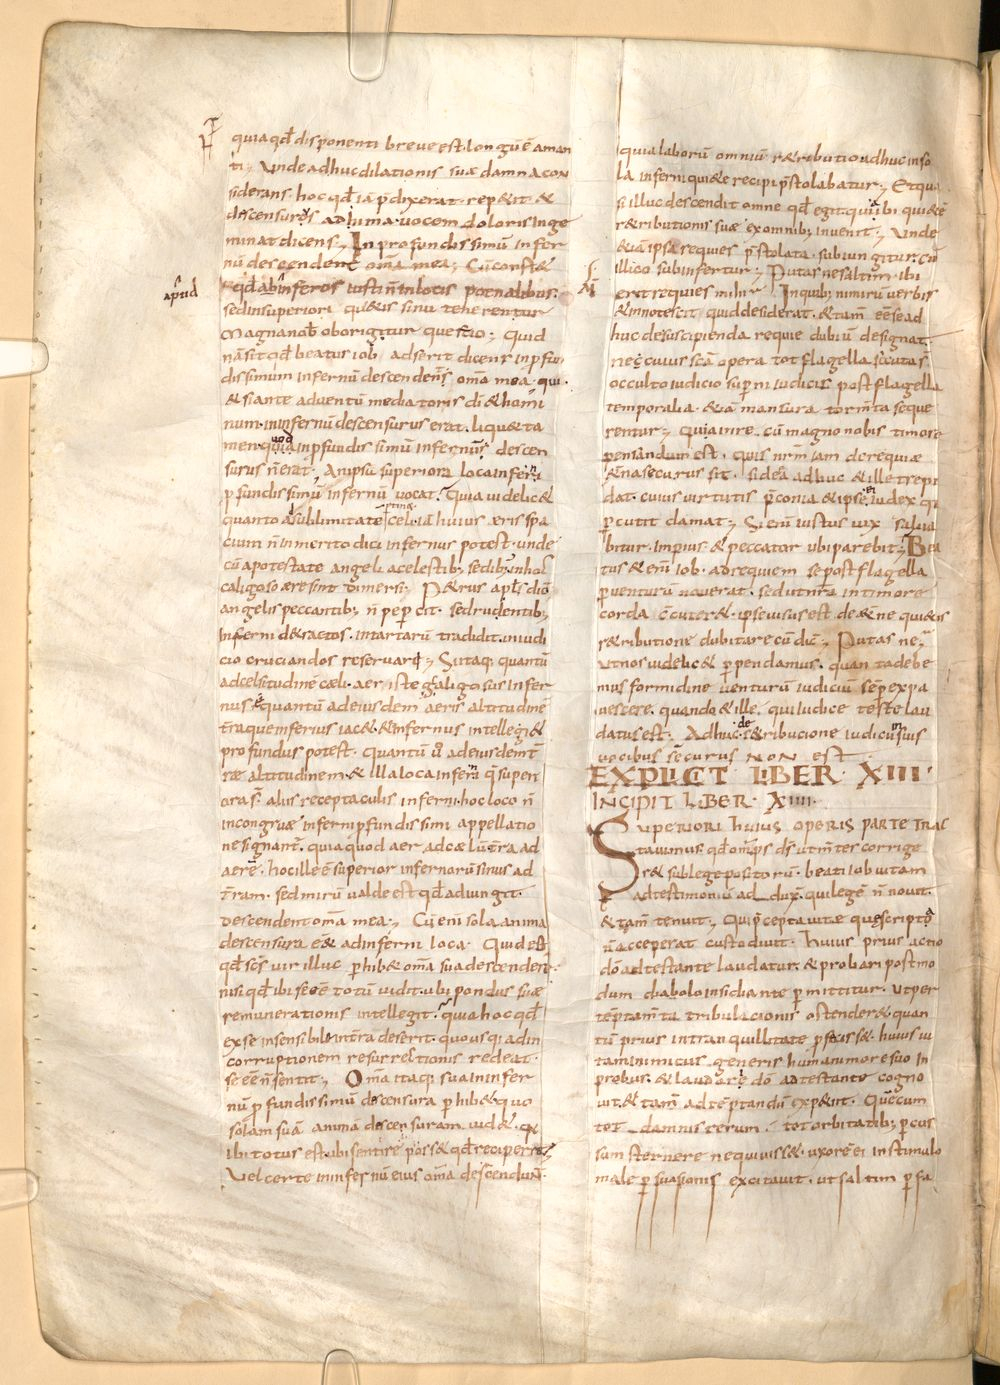 quia qđ disponenti breve est. longū ē aman
ti; Unde adhuc dilationis suae damna con
siderans. hoc qđ iā p̄dixerat. repetit &
descensuros ad hima. vocem doloris inge
minat dicens; In profundissimū infer
nū descendent om̄a mea; Cū constet
apud
qđ ab inferos iusti n̄ in locis poenalibus.
sed in superiori quietis sinu tenerentur
magna nob oborigitur questio; Quid
nā sit qđ beatus iob adserit dicens in p̄fun
dissimum infernū descendens om̄a mea. qui
& si ante adventū mediatoris dī & homi
num. in infernū descensurus erat. liqu& ta
men. quia quod in p̄fundissimū infernū descen
surus n̄ erat. An ipsū superiora loca inferni
p̄fundissimū infernū vocat. Quia videlic&
quanto ad sublimitatē celi. iā huius aeris spa
cium n̄ inmerito dici infernus potest. unde
cū apostatae angeli a celestib; sedib; in hoc
caligoso aere sint dimersi. Petrus apl̄s dic̄
angelis peccantib; n̄ pepercit. sed rudentib;
inferni detractos. in tartarū tradidit. in iudi
cio cruciandos reservari; Si itaq; quantū
ad celsitudinē caeli. aer iste caligosus infer
nus ē quantū ad eiusdem aeris altitudinē
t̄ra que inferius iac&. & infernus intellegi &
profundus potest. Quantū ū ad eiusdem t̄
rae altitudinem. & illa loca inferni q̄ superi
ora s̄. aliis receptaculis inferni. hoc loco n̄
incongruae inferni p̄fundissimi appellatio
ne signant̄. quia quod aer ad caelū. t̄ra ad
aerē. hoc ille ē superior infernorū sinus ad
t̄ram. sed mirū valde est qđ adiungit.
descendent om̄a mea; Cū enī sola anima
descensura ēet ad inferni loca. Quid est
qđ sc̄s vir illuc p̄hib& om̄a sua descendere.
nisi qđ ibi se ēē totū vidit. ubi pondus suae
remunerationis intellegit. quia hoc qđ
ex se insensibile in t̄ra deserit. quousq; ad in
corruptionem resurrectionis redeat.
se ēē n̄ sentit; Om̄a itaq; sua in infer
nū p̄fundissimū descensura p̄hib&. quo
solam suā animā descensuram vid&. quia
ibi totus est. ubi sentire poss& qđ reciperet
Vel certe in infernū eius om̄a descendunt
quia laborū omniū retributio adhuc in so
la inferni quiete recipi p̄stolabatur; Et qua
si illuc descendit omne qđ egit. qui ibi quietē
retributionis suae ex omnib; invenit; Unde
& iā ipsa requies p̄stolata. subiungitur. cū
illico subinfertur; Putasne saltim. ibi
erit requies mihi? In quib; nimirū verbis
& innotescit quid desiderat. & tam̄ ēē se ad
huc de suscipienda requie dubiū designat.
ne cuius scā opera tot flagella secutas
occulto iudicio sup̄ni iudicis post flagella
temporalia. & iā mansura torm̄ta seque
rentur; Qua in re cū magno nobis timore
pensandum est. quis nr̄m iam de requiae
&̄na securus sit. si de ea adhuc & ille trepi
dat. cuius virtutis p̄conia & ipse iudex qui
p̄cutit clamat; Si enī iustus vix salva
bitur. impius & peccator ubi parebit; Bea
tus & enī iob. ad requiem se post flagella
p̄venturū noverat. sed ut nr̄a in timore
corda c̄cuteret. ipse visus est de &̄ne quietis
retributione dubitare cū dic̄; Putas ne?
ut nos videlic& p̄pendamus. quanta debe
mus formidine venturū iudiciū sēp expa
vescere. quando & ille. qui iudice teste lau
datus est. Adhuc de retribucione iudicii in suis
vocibus securus NON est
EXPLICIT LIBER XIII.
INCIPIT LIBER XIIII.
SUPERIORI huius OPERIS PARTE TRAC
tavimus. qđ omp̄s ds̄ ut m̄tes corrige
ret sub lege positorū. beati iob vitam
ad testimoniū adduxit. qui legē n̄ novit.
& tam̄ tenuit; Qui p̄cepta vitae quae scripto
n̄ acceperat custodivit. Huius prius actio
dō adtestante laudatur. & probari postmo
dum diabolo insidiante p̄mittitur. ut per
tēptam̄ta tribulacionis ostender& quan
tū prius in tranquillitate p̄feciss&. huius vi
tam inimicus generis humani more suo in
probus. & laudare dō adtestante cogno
vit. & tam̄ ad tēptandū exp&iit. Quē cum
tot damnis rerum. tot orbitatib; p̄cus
sum sternere nequiviss&. uxorē ei in stimulo
male p̄suasionis excitavit. ut saltim p̄ fa